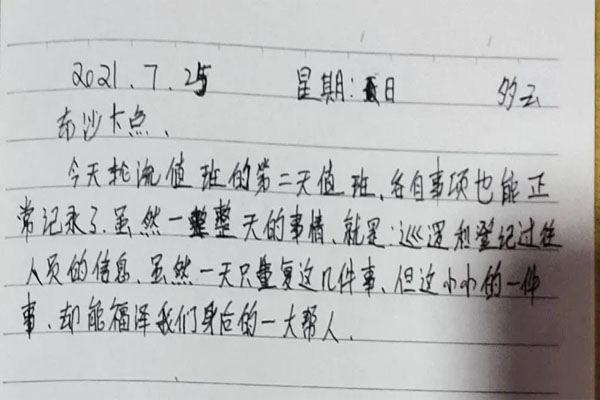 2021.7.25 星期:日 多云
东沙卡点、
今天轮流值班的第二天值班、各自事项也能正
常记录了.虽然一整天的事情、就是:巡逻和登记过往
人员的信息、虽然一天只重复这几件事、但这小小的一件
事、却能福泽我们身后的一大帮人.